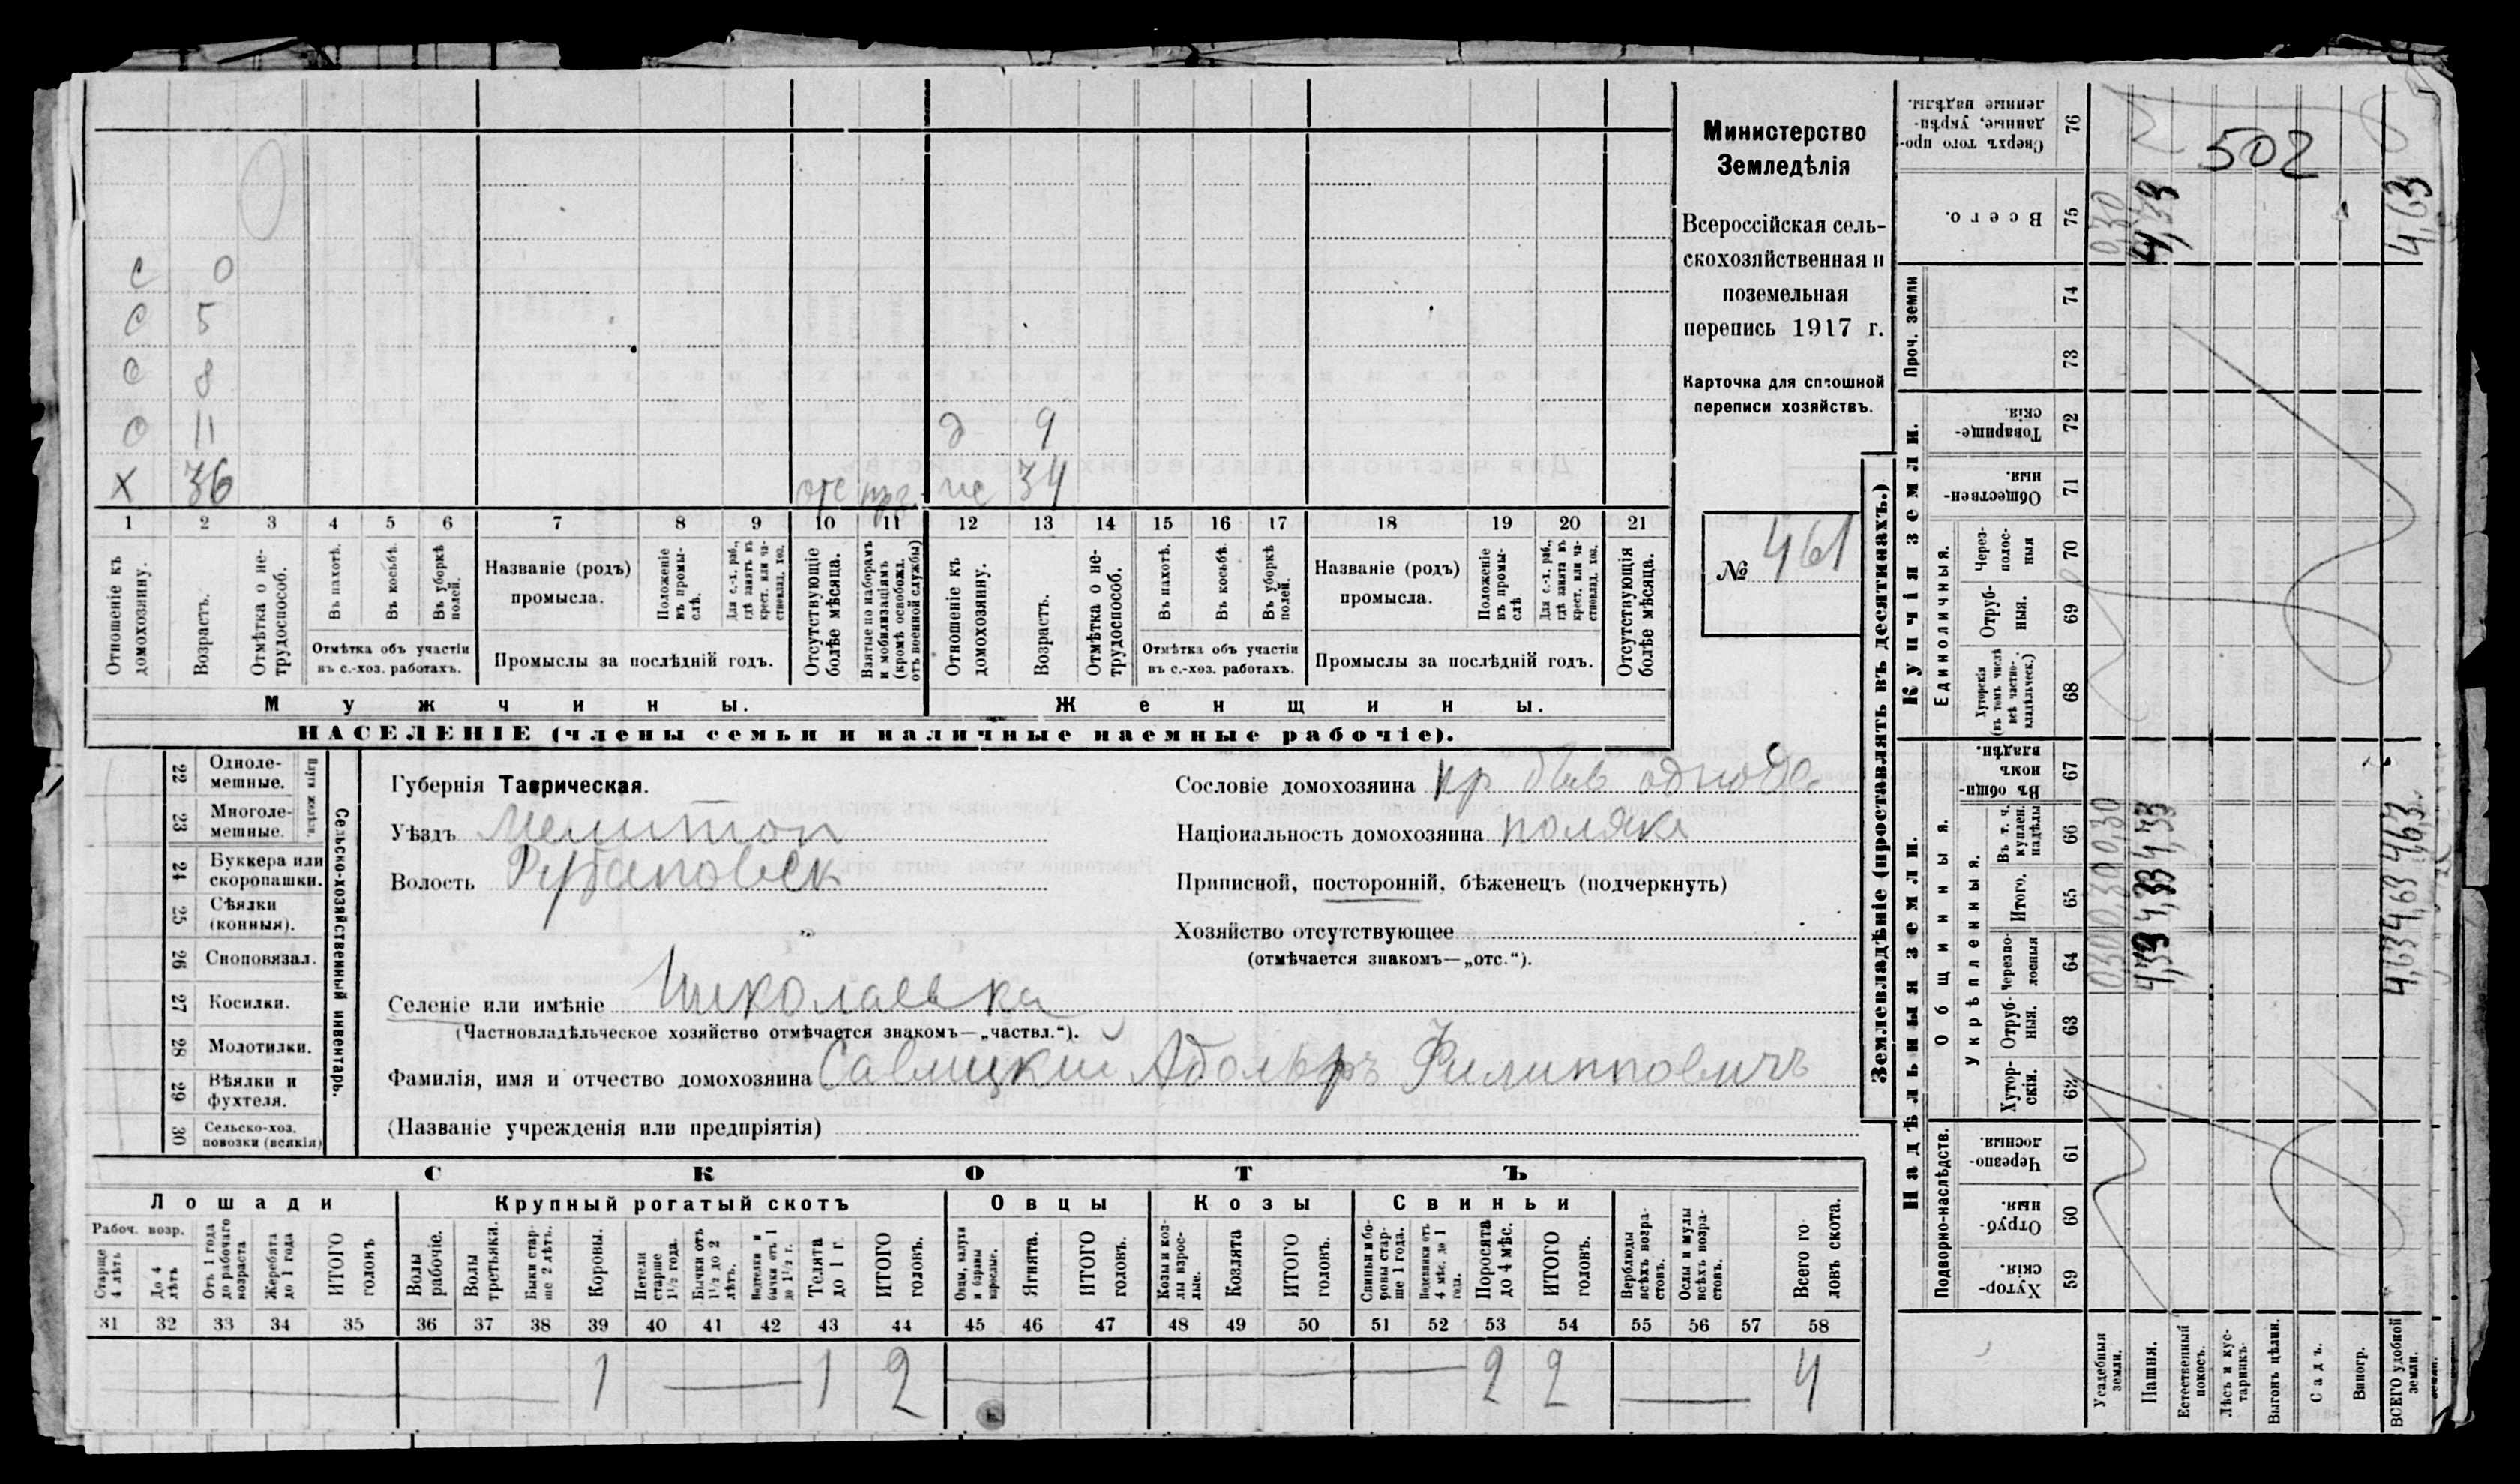 С 0
С 5
С 8
С 11 д 9
Х 36 отс же 34
1 2 3 4 5 6 7 8 9 10 11 12 13 14 15 16 17 18 19 20 21
Отношеніе къ домохозяину.
Возрастъ.
Отмѣтка о не-трудоспособ.
Въ пахотѣ.
Въ косьбѣ.
Въ уборкѣ полей.
Отмѣтка объ участіи
въ с.-хоз. работахъ.
Названіе (родъ)
промысла.
Положеніе въ промы-слѣ.
Для с.-х. раб., гдѣ занятъ въ крест. или ча-стновлад. хоз.
Промыслы за послѣдній годъ.
Отсутствующіе болѣе мѣсяца.
Взятые по наборамъ и мобилизаціямъ (кромѣ освобожд. отъ военной службы)
Отношеніе къ домохозяину.
Возрастъ.
Отмѣтка о не-трудоспособ.
Въ пахотѣ.
Въ косьбѣ.
Въ уборкѣ полей.
Отмѣтка объ участіи
въ с.-хоз. работахъ.
Названіе (родъ)
промысла.
Положеніе въ промы-слѣ
Для с.-х. раб., гдѣ занята въ крест. или ча-стновлад. хоз.
Промыслы за послѣдній годъ.
Отсутствующія болѣе мѣсяца.
Мужчины.
Женщины.
НАСЕЛЕНІЕ (члены семьи и наличные наемные рабочіе).
Министерство
Земледѣлія
Всероссійская сель-
скохозяйственная и
поземельная
перепись 1917 г.
Карточка для сплошной
переписи хозяйствъ.
№ 461
22 Однолемешные.
23 Многолемешные.
Плуги желѣзн.
24 Буккера или скоропашки.
25 Сѣялки (конныя).
26 Сноповязал.
27 Косилки.
28 Молотилки.
29 Вѣялки и фухтеля.
30 Сельско-хоз. повозки (всякія)
Сельско-хозяйственный инвентарь.
Губернія Таврическая.
Уѣздъ Мелитоп
Волость Рубановск
Селеніе или имѣніе Николаевка
(Частновладѣльческое хозяйство отмѣчается знакомъ—„частвл.“).
Фамилія, имя и отчество домохозяина Савицкій Адольфъ Филипповичъ
(Названіе учрежденія или предпріятія)
Сословіе домохозяина кр
Національность домохозяина поляка
Приписной, посторонній, бѣженецъ (подчеркнуть)
Хозяйство отсутствующее
(отмѣчается знакомъ—„отс.“).
СКОТЪ
Лошади
Крупный рогатый скотъ
Овцы
Козы
Свиньи
Рабоч. возр.
Старше 4 лѣтъ
До 4 лѣтъ
Отъ 1 года до рабочаго возраста
Жеребята до 1 года
ИТОГО головъ
Волы рабочіе.
Волы третьяки.
Быки стар-ше 2 лѣтъ.
Коровы.
Нетели старше 1½ года.
Бычки отъ 1½ до 2 лѣтъ.
Нетелики и бычки отъ 1 до 1½ г.
Телята до 1 г.
ИТОГО головъ.
Овцы, валухи и бараны взрослые.
Ягнята.
ИТОГО головъ.
Козы и коз-лы взрос-лые.
Козлята
ИТОГО головъ.
Свиньи и бо-ровы стар-ше 1 года.
Подсвинки отъ 4 мѣс. до 1 года.
Поросята до 4 мѣс.
ИТОГО головъ.
Верблюды всѣхъ возра-стовъ.
Ослы и мулы всѣхъ возра-стовъ.
Всего го-ловъ скота.
31 32 33 34 35 36 37 38 39 40 41 42 43 44 45 46 47 48 49 50 51 52 53 54 55 56 57 58
1 1 2 2 2 4
Землевладѣніе (проставлять въ десятинахъ.)
Купчія земли.
Надѣльныя земли.
Сверхъ того про-данные, укрѣп-ленные надѣлы. 76
502
Всего. 75 0,30 4,33 4,63
Проч. земли 74 73
Товарище-скія. 72
Обществен-ныя. 71
Единоличныя.
Через-полос-ныя 70
Отруб-ныя. 69
Хуторскія (въ томъ числѣ всѣ частно-владѣльческ.) 68
Общинныя.
Въ общи-номъ владѣн. 67
Укрѣпленныя.
Въ т. ч. куплен. надѣлы 66 0,30 4,33 4,63
Итого. 65 0,30 4,33 4,63
Черезпо-лосныя 64 0,30 4,33 4,63
Отруб-ныя. 63
Хутор-скія. 62
Подворно-наслѣдств.
Черезпо-лосныя. 61
Отруб-ныя. 60
Хутор-скія. 59
Усадебныя земли.
Пашня.
Естественный покосъ.
Лѣсъ и кус-тарникъ.
Выгонъ цѣлин.
Садъ.
Виногр.
ВСЕГО удобной земли.